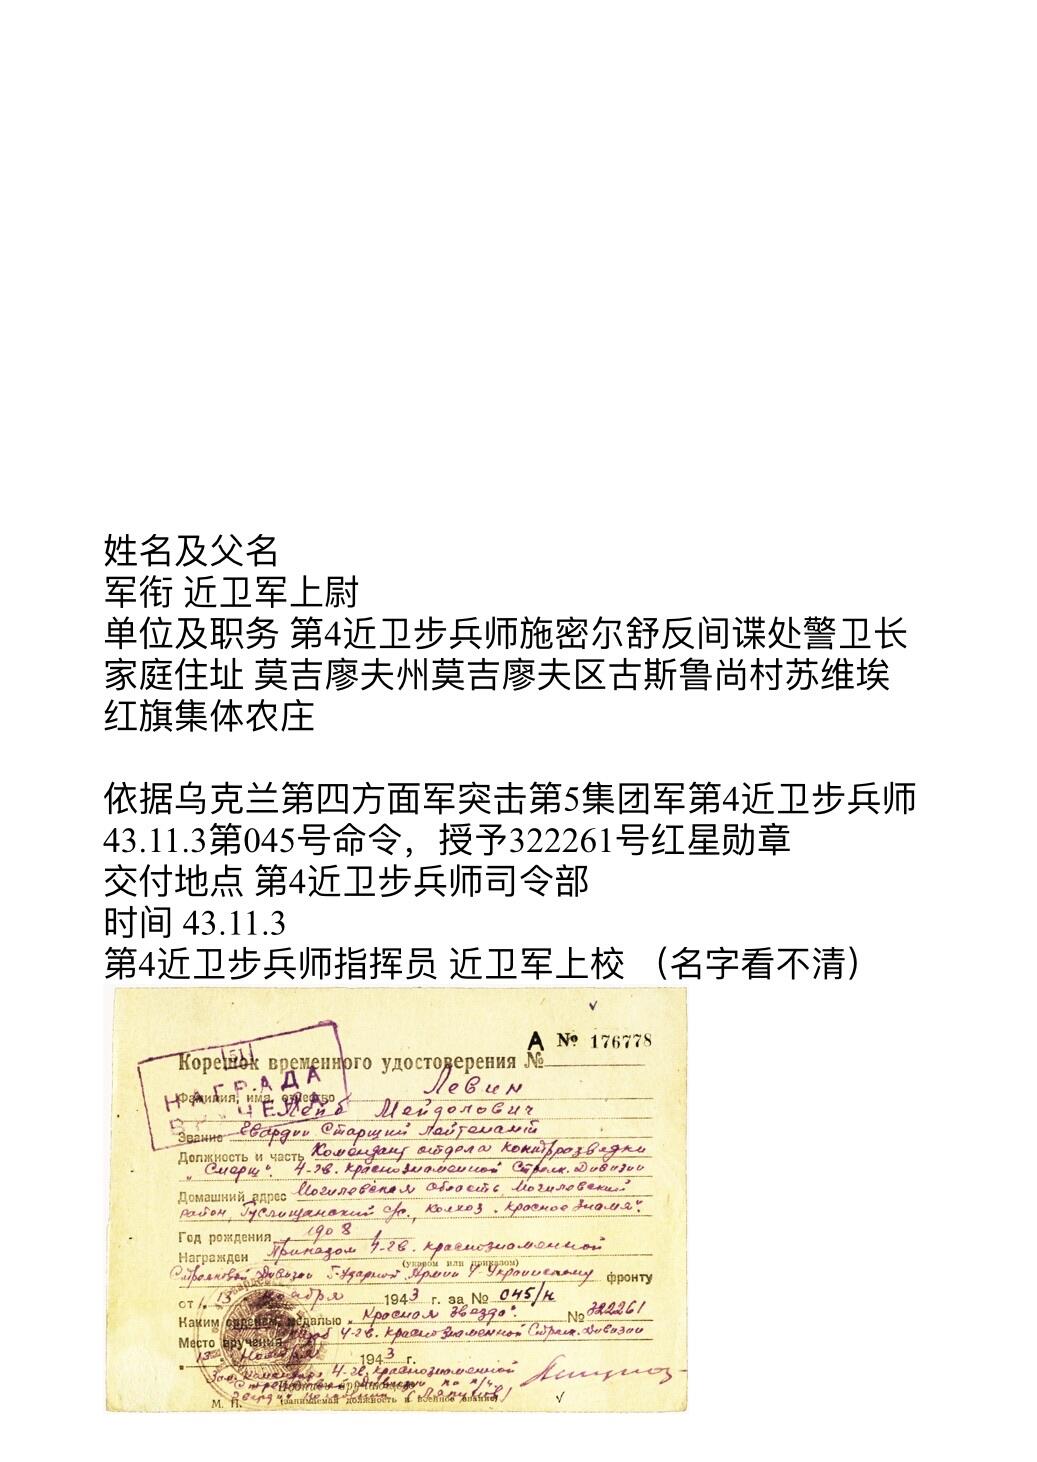 姓名及父名
军衔 近卫军上尉
单位及职务 第4近卫步兵师施密尔舒反间谍处警卫长
家庭住址 莫吉廖夫州莫吉廖夫区古斯鲁尚村苏维埃
红旗集体农庄
依据乌克兰第四方面军突击第5集团军第4近卫步兵师
43.11.3第045号命令，授予322261号红星勋章
交付地点 第4近卫步兵师司令部
时间 43.11.3
第4近卫步兵师指挥员 近卫军上校 （名字看不清）
А № 176778
Корешок временного удостоверения №
НАГРАДА
Фамилия, имя, отчество Левин
Мейдолович
Звание Гвардии Старший Лейтенант
Должность и часть Комендант отдела контрразведки
"Смерш" 4-гв. Краснознаменной Стрелк. Дивизии
Домашний адрес Могилевская область, Могилевский
район, Гуслищанский с/с, колхоз "Красное Знамя".
Год рождения 1908
Награжден Приказом 4-гв. Краснознаменной
(указом или приказом)
Стрелковой Дивизии 5-Ударной Армии 4-Украинскому фронту
от 13 ноября 1943 г. за № 045/н
Каким орденом, медалью "Красная Звезда". № 322261
Место вручения 4-гв. Краснознаменной Стрелк. Дивизии
13 Ноября 1943 г.
4-гв. Краснознаменной
М. П. (занимаемая должность и военное звание)